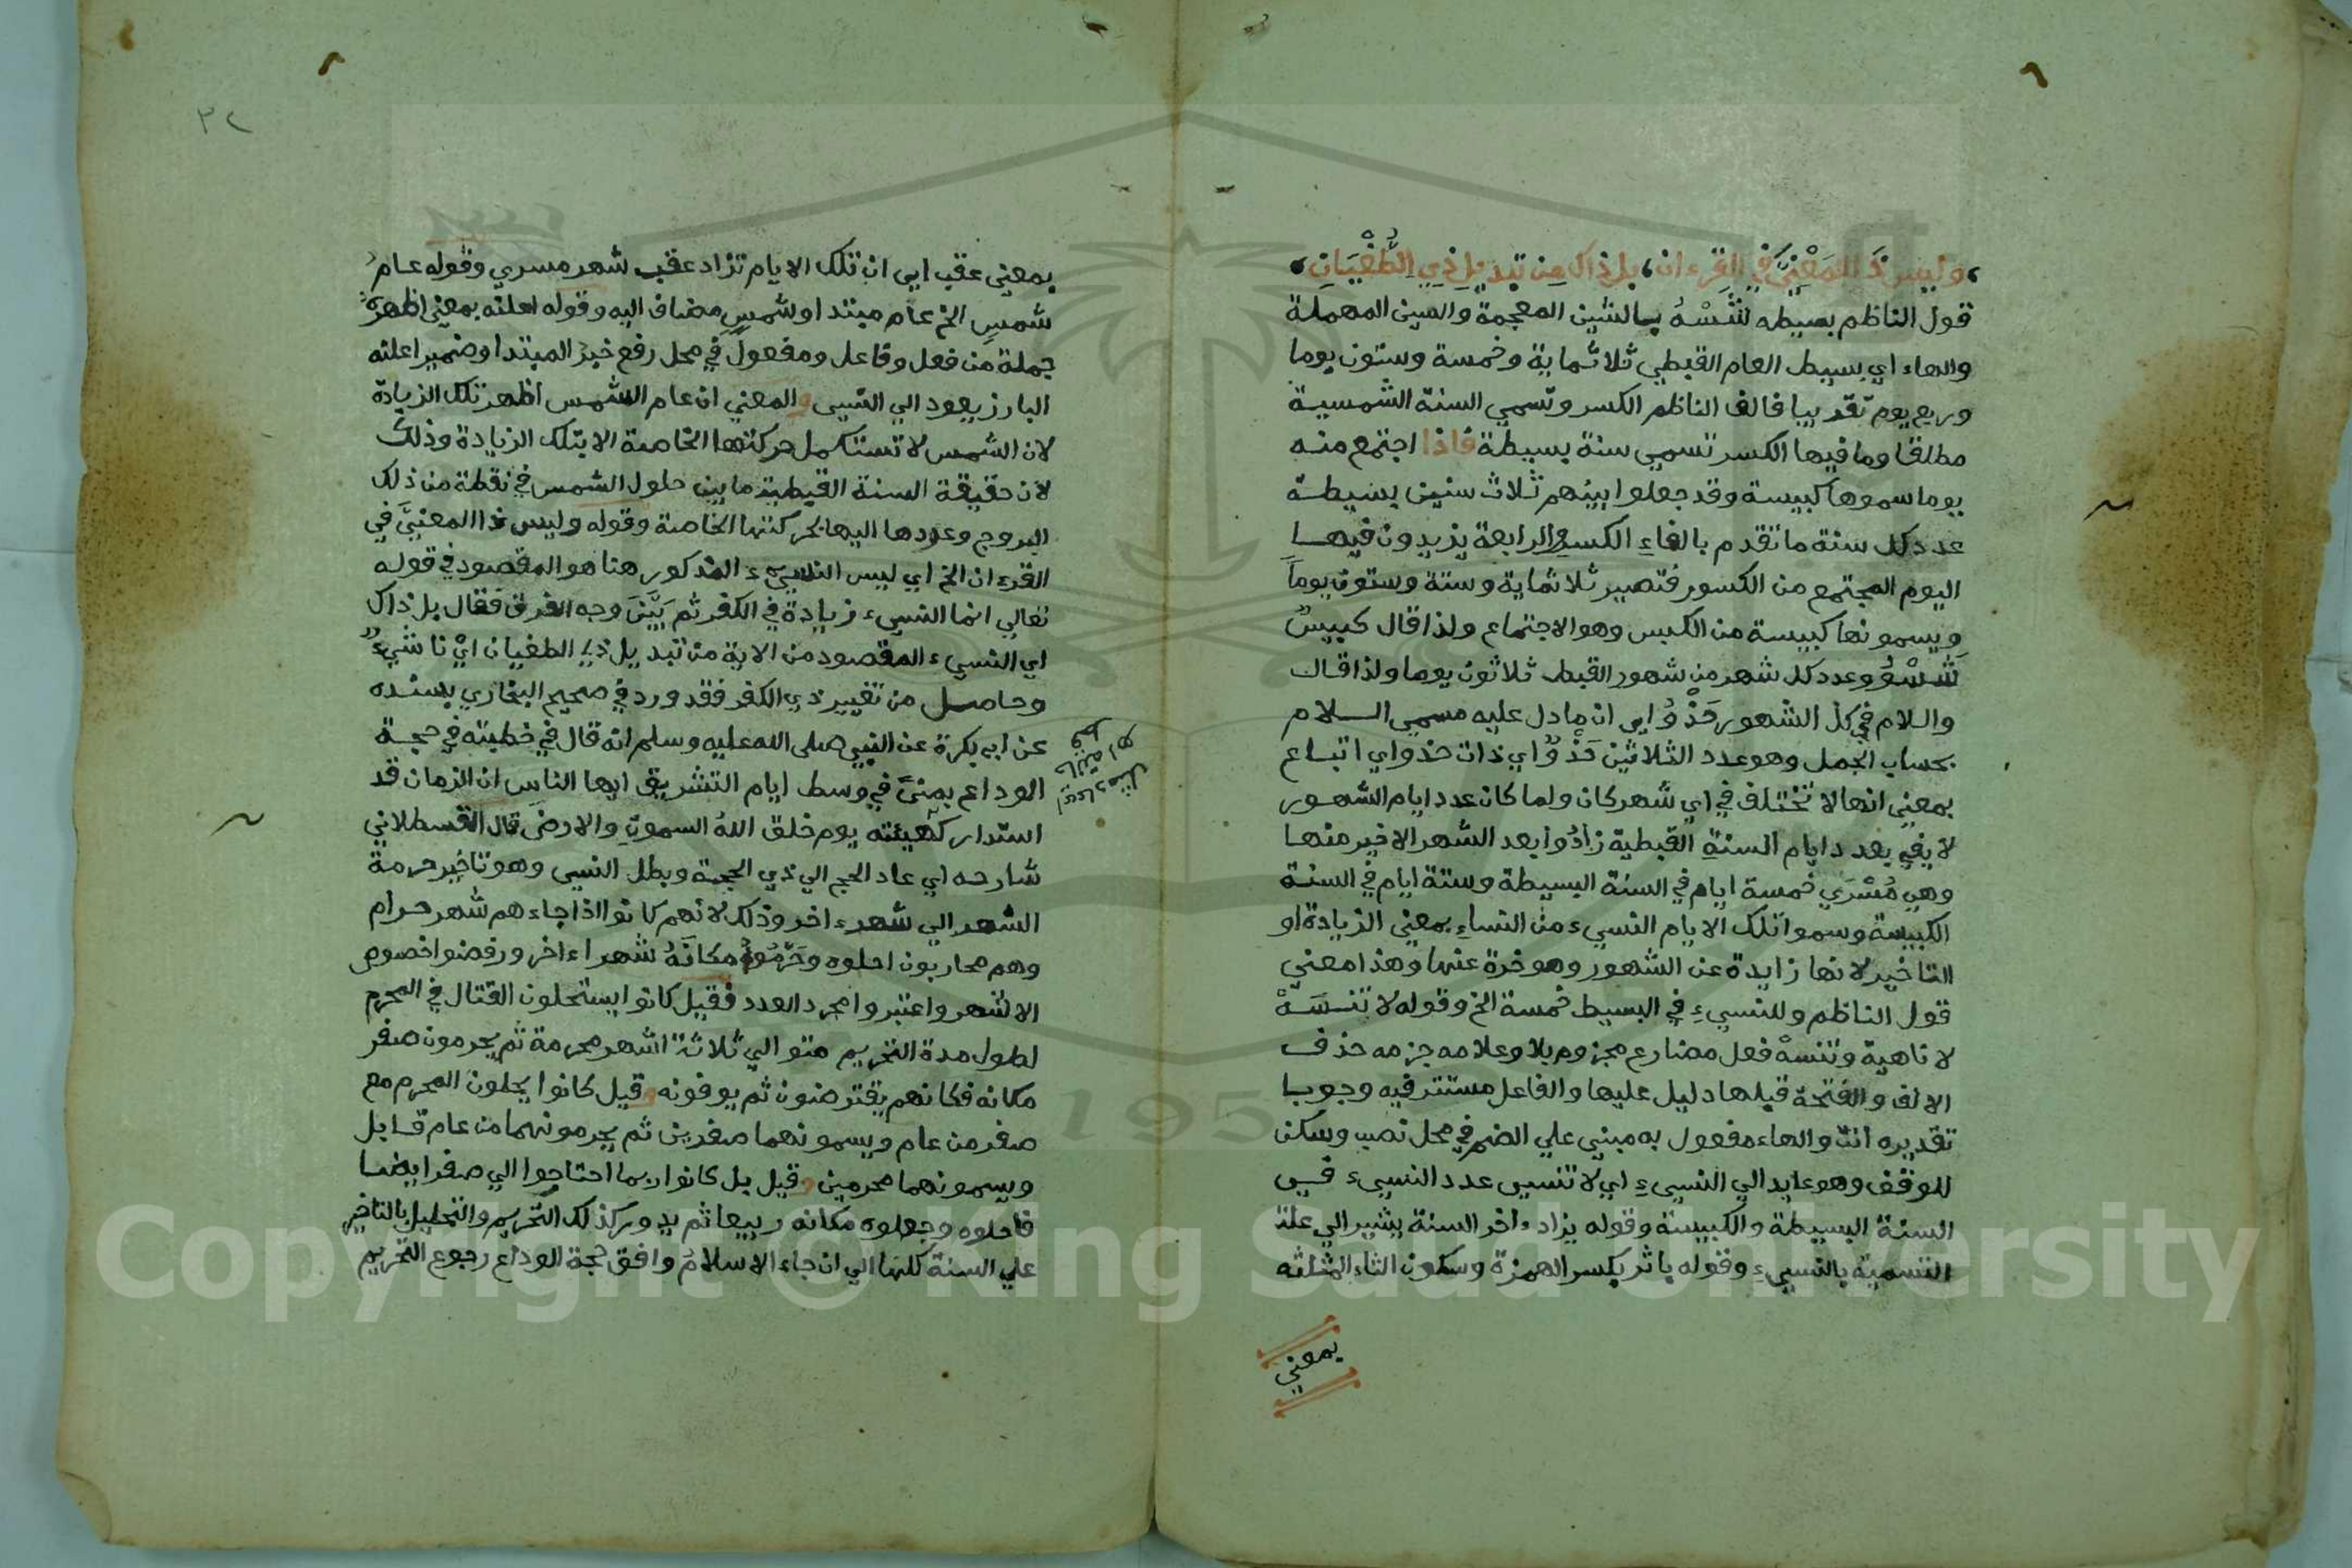 وليس ذا المعنيَّ في القرءان، بل ذاك من تبديل ذي الطُّغْيَانِ،
قول الناظم بسيطه شَسْهُ بالشين المعجمة والسين المهملة
والهاء اي بسيط العام القبطي ثلاثماية وخمسة وستون يوما
وربع يوم تقريبا فالغا الناظم الكسر وتسمي السنة الشمسية
مطلقا وما فيها الكسر تسمي سنة بسيطة فاذا اجتمع منه
يوما سموها كبيسة وقد جعلوا بينهم ثلاث سنين بسيطة
عدد كل سنة ما تقدم بالغاء الكسر والرابعة يزيدون فيها
اليوم المجتمع من الكسور فتصير ثلاثماية وستة وستون يوماً
ويسمونها كبيسة من الكبس وهو الاجتماع ولذا قال كبيسٌ
شَسْوُ وعدد كل شهر من شهور القبط ثلاثون يوما ولذا قال
واللام في كل الشهور حَذْوُ اي ان ما دل عليه مسمي اللام
بحساب الجمل وهو عدد الثلاثين حَذْوٌ اي ذات حذو اي اتباع
بمعني انها لا تختلف في اي شهر كان ولما كان عدد ايام الشهور
لا يفي بعدد ايام السنة القبطية زادُوا بعد الشهر الاخير منها
وهي مُسْرَي خمسة ايام في السنة البسيطة وستة ايام في السنة
الكبيسة وسموا تلك الايام النسيء من النساءِ بمعني الزيادة او
التاخير لانها زايدة عن الشهور وموخرة عنها وهذا معني
قول الناظم وللنسيءِ في البسيط خمسة الخ وقوله لا تنسَهْ
لا ناهية وتنسهْ فعل مضارع مجزوم بلا وعلامه جزمه حذف
الالف والفتحة قبلها دليل عليها والفاعل مستتر فيه وجوبا
تقديره انت والهاء مفعول به مبني علي الضم في محل نصب وسكن
للوقف وهو عايد الي النسيءِ اي لا تنسي عدد النسيء في
السنة البسيطة والكبيسة وقوله يزاد ءاخر السنة يشير الي علة
التسمية بالنسيءِ وقوله باثر بكسر الهمزة وسكون الثاء المثلثه
بمعني
٣٢
بمعني عقب اي ان تلك الايام تزاد عقب شهر مسري وقوله عام
شمسٍ الخ عام مبتدا وشمسٍ مضاف اليه وقوله اعلنه بمعني اظهره
جملة من فعل وفاعل ومفعول في محل رفع خبر المبتدا وضمير اعلنه
البارز يعود الي النسي والمعني ان عام الشمس اظهر تلك الزيادة
لان الشمس لا تستكمل حركتها الخاصة الا بتلك الزيادة وذلك
لان حقيقة السنة القبطية ما بين حلول الشمس في نقطة من ذلك
البروج وعودها اليها بحركتها الخاصة وقوله وليس ذا المعنيَّ في
القرءان الخ اي ليس النسيء المذكور هنا هو المقصود في قوله
تعالي انما النسيء زيادة في الكفر ثم بَيَّنَ وجه الفرق فقال بل ذاك
اي النسيء المقصود من الاية من تبديل ذي الطغيان ايْ ناشيءٌ
وحاصل من تغيير ذي الكفر فقد ورد في صحيح البخاري بسنده
عن ابي بكرة عن النبي صلى الله عليه وسلم انه قال في خطبته في حجة
الوداع بمنيً في وسط ايام التشريق ايها الناس ان الزمان قد
استدار كهيئته يوم خلق اللهُ السموتِ والارض قال القسطلاني
شارحه اي عاد الحج الي ذي الحجة وبطل النسي وهو تاخير حرمة
الشهر الي شهر ءاخر وذلك لانهم كانوا اذا جاءهم شهر حرام
وهم محاربون احلوه وحَرَّمُوا مكانَهُ شهرا ءاخر ورفضوا خصوص
الاشهر واعتبروا مجرد العدد فقيل كانوا يستحلون القتال في المحرم
لطول مدة التحريم متوالي ثلاثة اشهر محرمة ثم يحرمون صفر
مكانه فكانهم يقترضون ثم يوفونه وقيل كانوا يحلون المحرم مع
صفر من عام ويسمونهما صفرين ثم يحرمونهما من عام قابل
ويسمونهما محرمين وقيل بل كانوا ربما احتاجوا الي صفر ايضا
فاحلوه وجعلوه مكانه ربيعا ثم يدور كذلك التحريم والتحليل بالتاخير
علي السنة كلها الي ان جاء الاسلامُ وافق حجة الوداع رجوع التحريم
Copyright © King Saud University
195